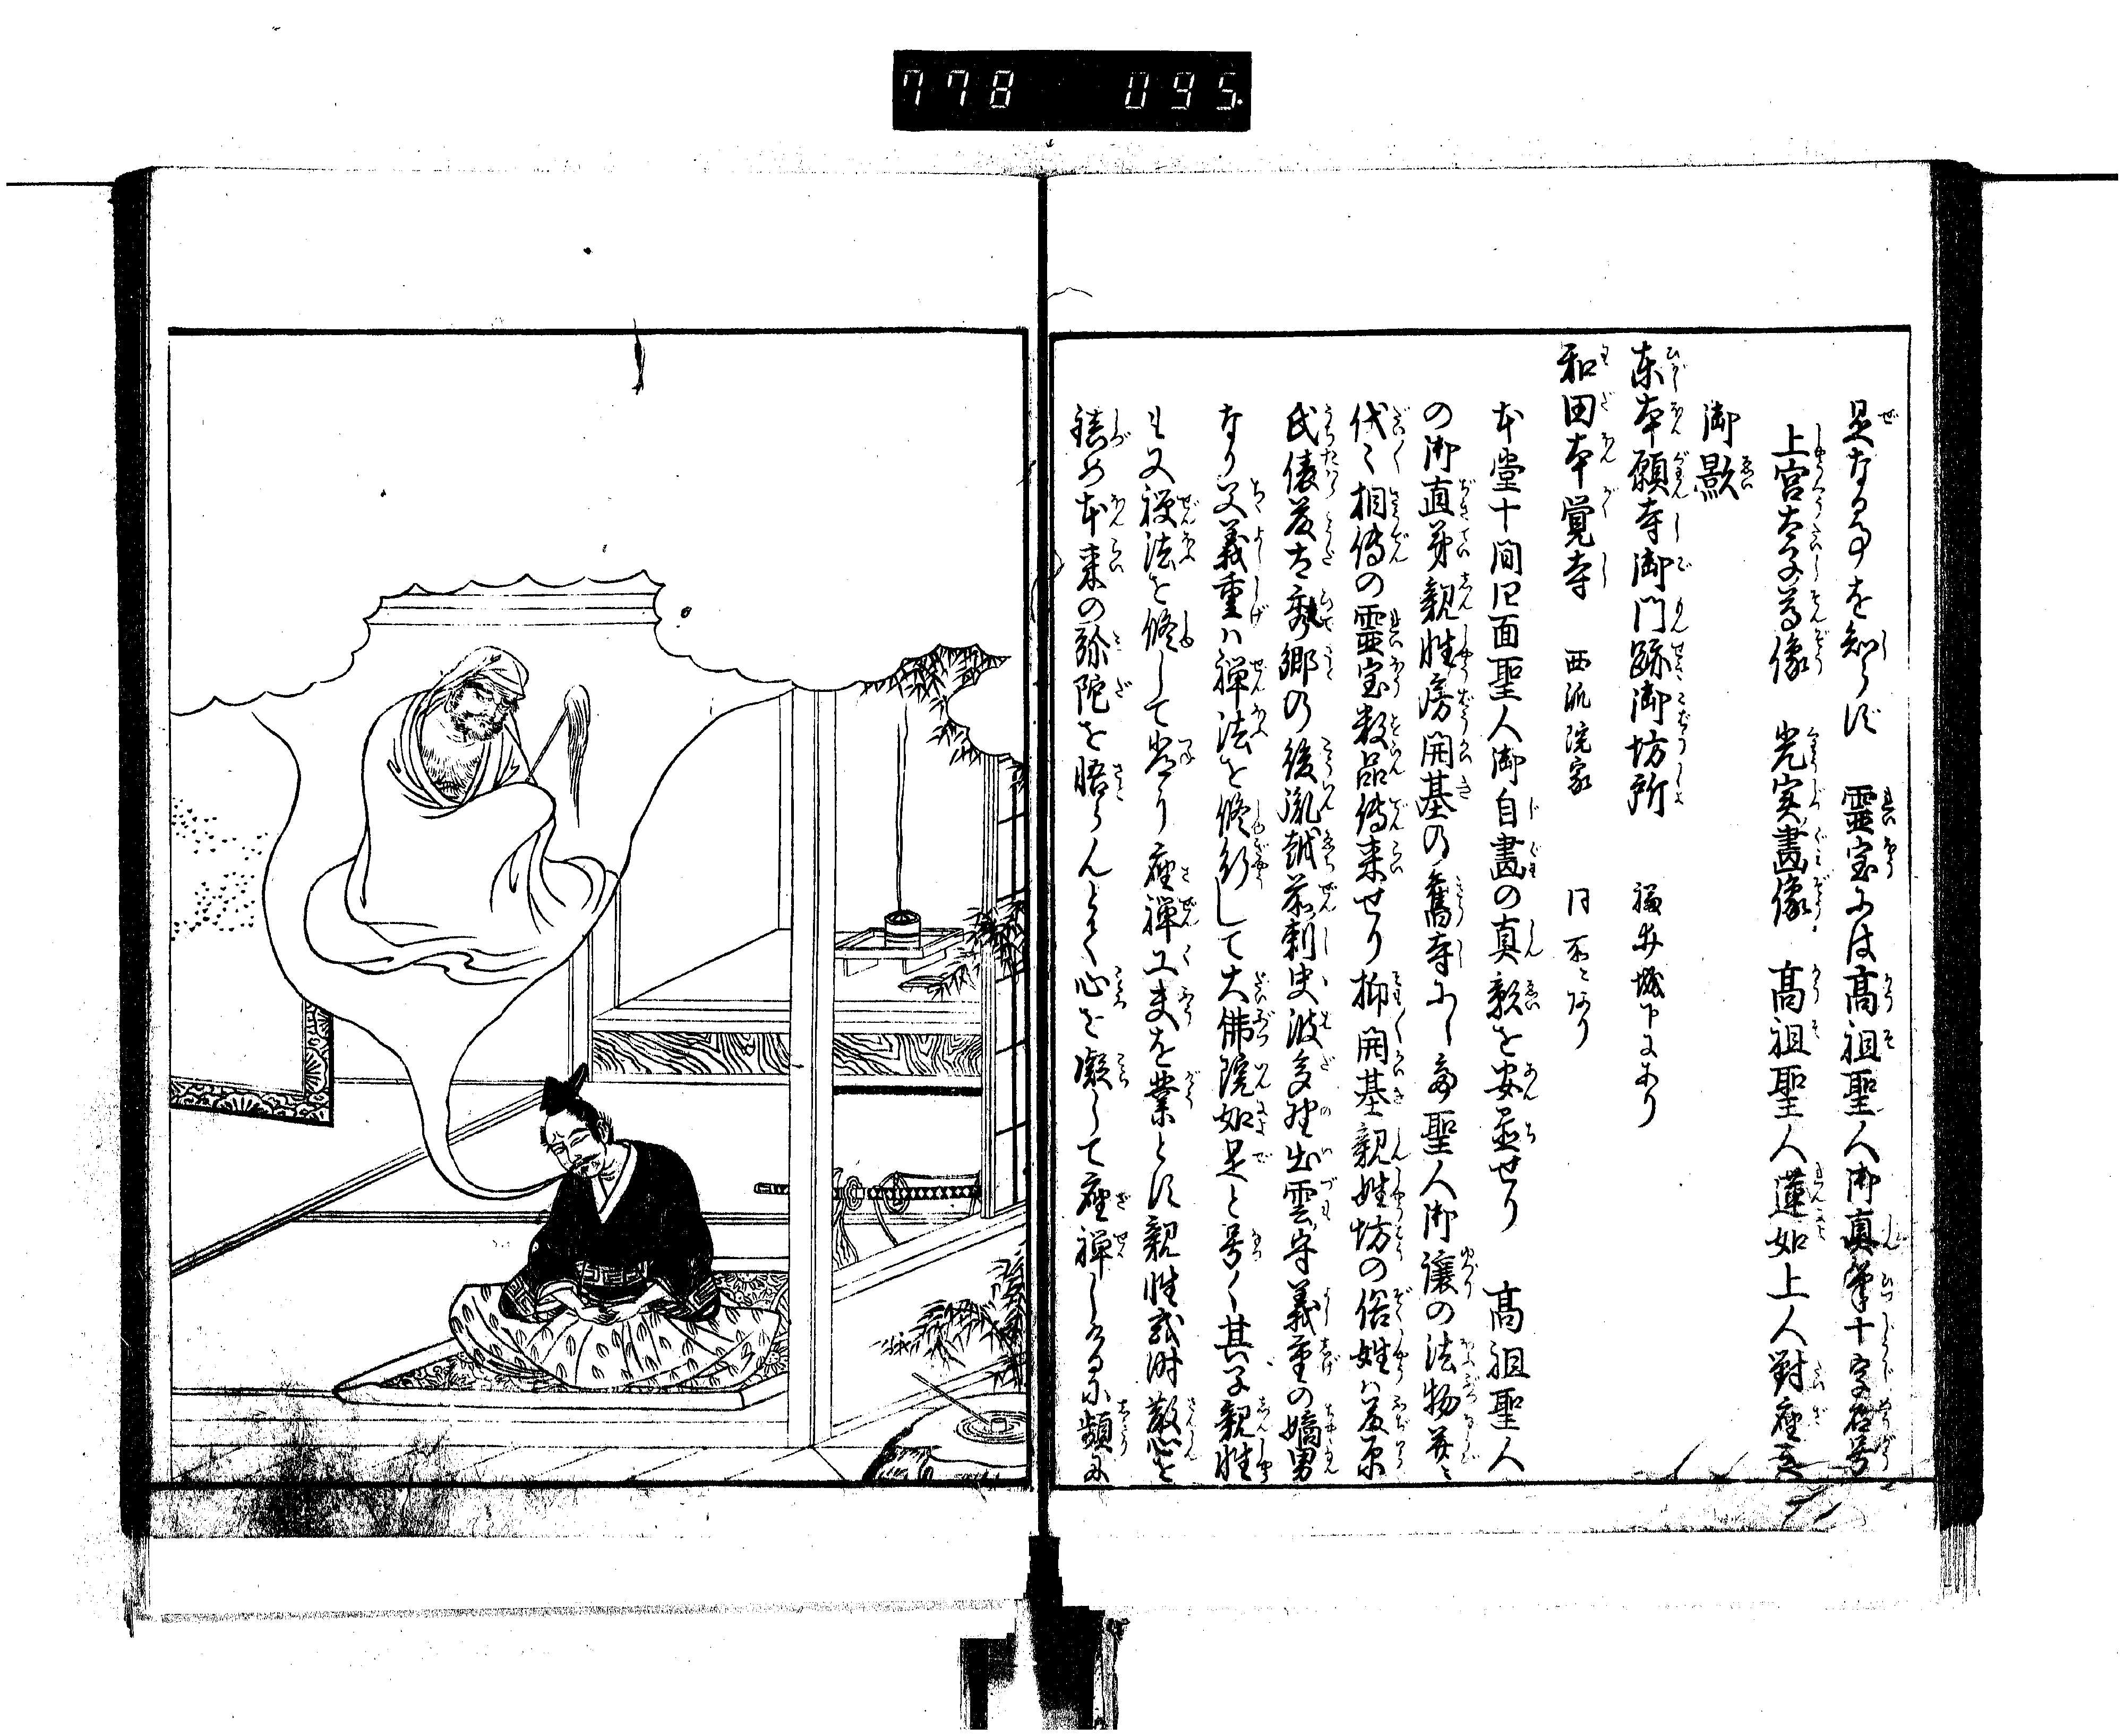 778 095
是なる事を知らず 靈宝には髙祖聖人御真筆十字名号
上宮太子尊像 光実畫像 髙祖聖人蓮如上人對座真
御影
東本願寺御門跡御坊所 福井城下にあり
和田本覚寺 西派院家 同所にあり
本堂十間四面聖人御自畫の真影を安置せり 髙祖聖人
の御直弟親性房開基の舊寺にして聖人御譲の法物并に
代々相傳の靈宝数品傳来せり抑開基親性坊の俗姓ハ藤原
氏俵藤太秀郷の後胤越前刺史波多野出雲守義重の嫡男
なり父義重ハ禅法を修行して大佛院如是と号く其子親性
も又禅法を修して常に座禅工夫を業とす親性或時散心を
鎮め本来の弥陀を悟らんとて心を凝して座禅しけるに頻に